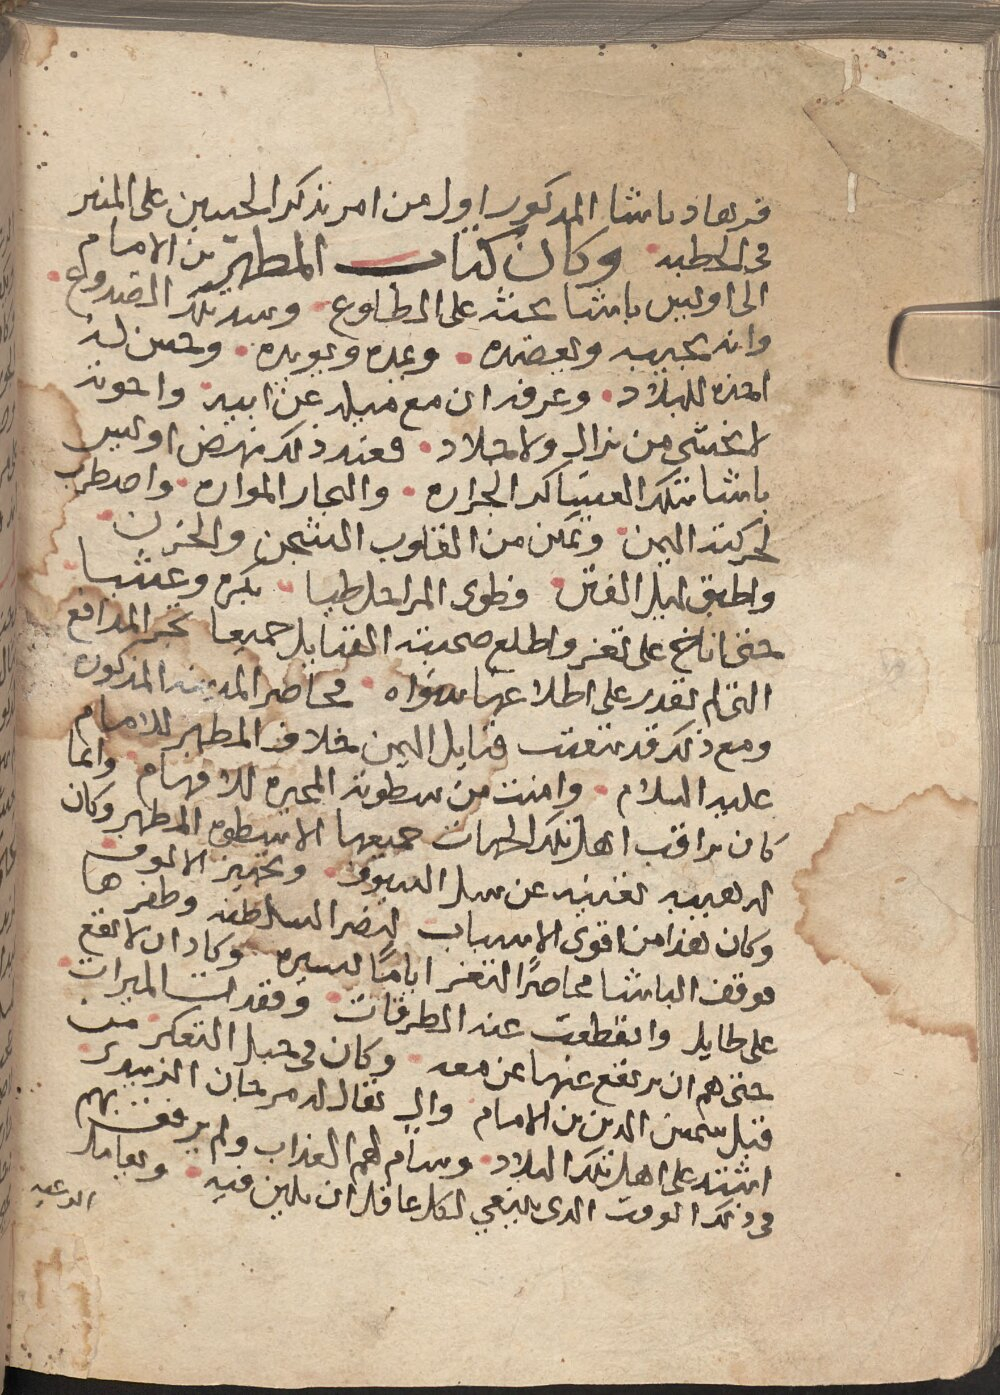 فرهاد باشا المذكور اول من امر بذكر الحسين على المنبر
في الخطبه وكان كتاب المطهر بن الامام
الى اويس باشا يحثه على الطلوع وسد تلك الصدوع
وانه يجيبه ويعضده ويمده ويويده وحسن له
اخذه للبلاد وعرفه ان مع ميله عن ابيه واخوته
لا يخشى من نزال ولا جلاد فعند ذلك نهض اويس
باشا بتلك العساكر الجراره والبحار المواره واضطرب
لحركته اليمن وتمكن من القلوب الشجن والحزن
واطبق ليل الفتن فطوى المراحل طيا بكره وعشيا
حتى اناخ على تعز واطلع صحبته القنابل جميعا بجر المدافع
التي لم يقدر على اطلاعها سواه فحاصر المدينه المذكوره
ومع ذلك قد تيقنت قبايل اليمن بخلاف المطهر للامام
عليه السلام وامنت من سطوته المحيره للافهام وانما
كان يراقب اهل تلك الجهات جميعها الا سطوه المطهر وكان
له هيبه تغنيه عن سل السيوف وتجهيز الالوف
وكان هذا من اقوى الاسباب لنصر السلطنه وظفرها
فوقف الباشا محاصرًا لتعز ايامًا يسيره وكاد ان لا يقع
على طايل وانقطعت عنه الطرقات وفقدت الميرات
حتى هم ان يرتفع عنها بمن معه وكان في جبل التعكر من
قبل شمس الدين بن الامام وال يقال له مرجان الزبيدي
اشتد على اهل تلك البلاد وسامهم العذاب ولم يرفق بهم
في ذلك الوقت الذي ينبغي لكل عاقل ان يلين فيه ويعامل
الرعيه